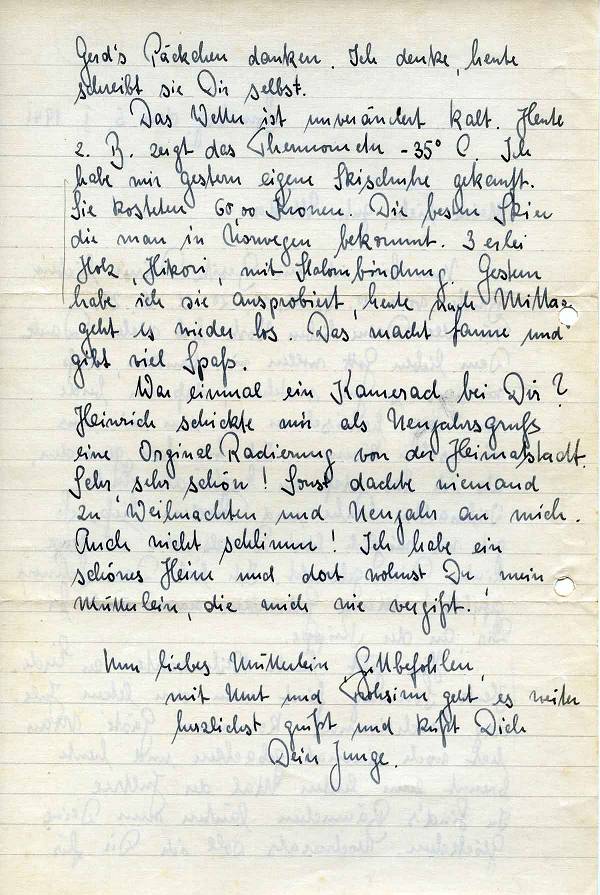 Gerd's Päckchen danken. Ich denke, heute
schreibt sie Dir selbst.
Das Wetter ist unverändert kalt. Heute
z. B. zeigt das Thermometer -35° C. Ich
habe mir gestern eigene Skischuhe gekauft.
Sie kosteten 60,00 Kronen. Die besten Skier
die man in Norwegen bekommt. 3 erlei
Holz, Hikori, mit Slalombindung. Gestern
habe ich sie ausprobiert, heute nach Mittag
geht es wieder los. Das macht Laune und
gibt viel Spaß.
War einmal ein Kamerad bei Dir?
Heinrich schickte mir als Neujahrsgruß
eine Orginal Radierung von der Heimatstadt.
Sehr, sehr schön! Sonst dachte niemand
zu Weihnachten und Neujahr an mich.
Auch nicht schlimm! Ich habe ein
schönes Heim und dort wohnst Du, mein
Mütterlein, die mich nie vergißt.
Nun liebes Mütterlein Gottbefohlen,
mit Mut und Frohsinn geht es weiter
herzlichst grüßt und küßt Dich
Dein Junge.